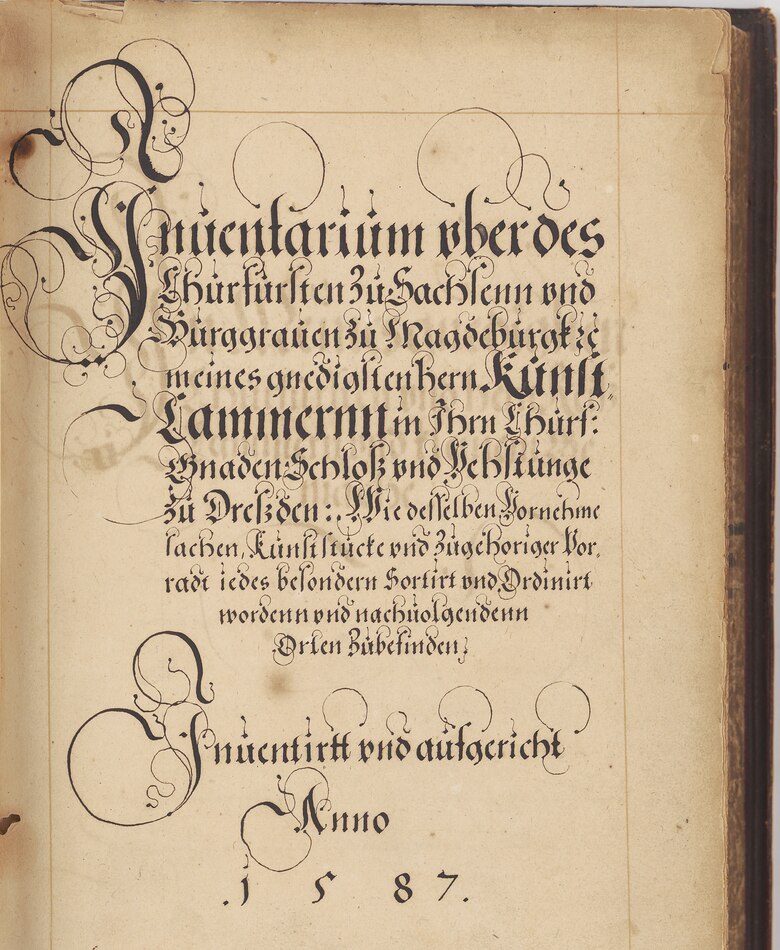 Inuentarium vber des
Churfürsten Zu Sachsenn vnd
Burggrauen Zu Magdeburgk ꝛc
meines gnedigsten hern Kunst
Cammernn in Ihrn Churf:
Gnaden Schloß vnd Vehstunge
zu Dreßden:. Wie desselben Vornehme
sachen, Kunststucke vnd zugehoriger Vor,
radt iedes besondern Sortirt vnd Ordinirt
wordenn vnd nachuolgendenn
Orten Zubefinden;
Inuentirtt vnd aufgericht
Anno
.1587.